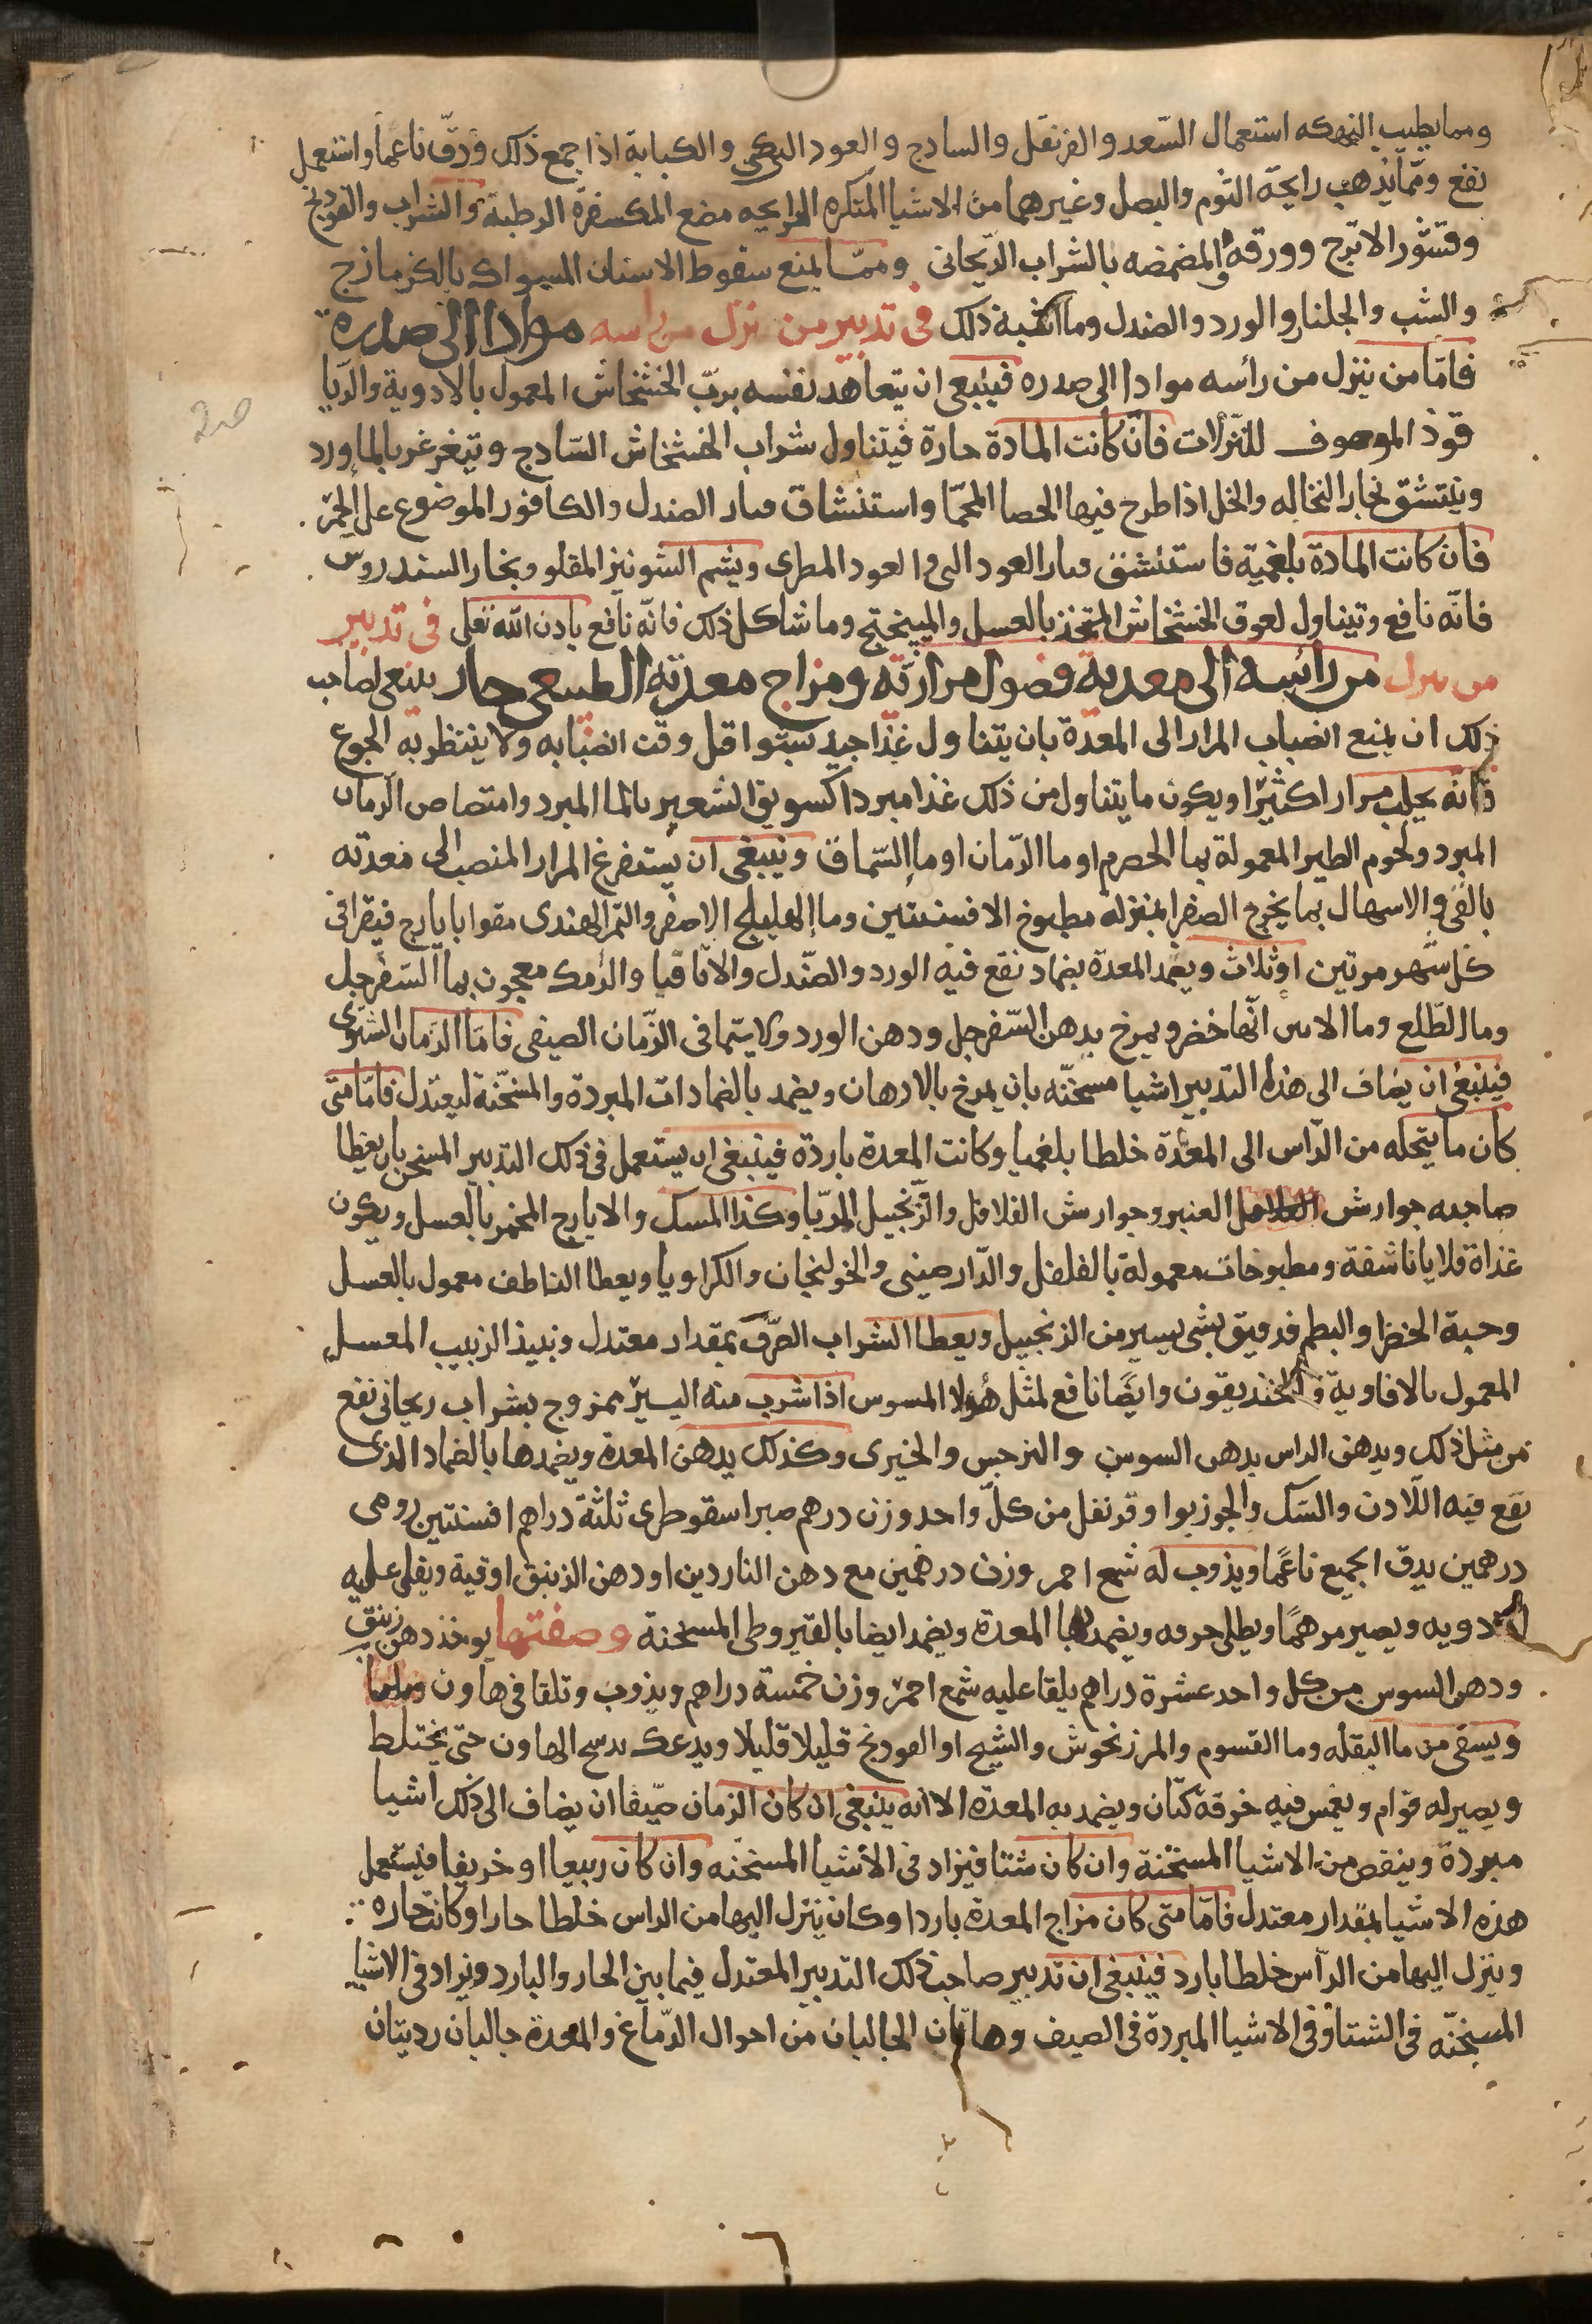 ومما يطيب النهكه استعمال السّعد والقرنفل والسادج والعود البكى والكبابة اذا جمع ذلك ودقّ ناعما واستعمل
نفع وممّا يذهب رايحة الثوم والبصل وغيرهما من الاشيا المتكره الرايحه مضع الكسفرة الرطبة والشراب والفودنج
وقشور الاترج وورقه والمضمضه بالشراب الريحانى وممّا يمنع سقوط الاسنان السواك بالكزمازج
والشب والجلنار والورد والصندل وما اشبه ذلك فى تدبير من نزل من راسه موادا الى صدره
فامّا من ينزل من رأسه موادا الى صدره فينبغى ان يتعاهد نفسه بربّ الخشخاش المعمول بالادوية والديا
قوذ الموصوف للنزلات فان كانت المادة حارة فيتناول شراب الخشخاش السّادج ويتغرغر بالماورد
وينتشق بخار النخاله والخل اذا طرح فيها الحصا المحمّا واستنشاق بخار الصندل والكافور الموضوع على الجمر
فان كانت المادة بلغمية فاستنشق بخار العود النى والعود المطرى ويشم الشونيز المقلو وبخار السندروس
فانّه نافع ويتناول لعوق الخشخاش المتخذ بالعسل والميبختج وما شاكل ذلك فانّه نافع بادن الله تعلى فى تدبير
من ىىرل من رائسه الى معدىه فضول مرارىّه ومزاج معدته الطبيعى حار ينبغى لصاحب
ذلك ان يمنع انصباب المرار الى المعدة بان يتناول غذا جيد سبتوا قبل وقت انصبابه ولا ينتظر به الجوع
فانّه يجلب مرارا كثيرًا ويكون ما يتناول من ذلك غذا مبردا كسويق الشعير بالما المبرد وامتصاص الرمان
المبرد ولحوم الطير المعمولة بما الحصرم او ما الرّمان او ما السّماق وينبغى ان يستفرغ المرار المنصب الى معدته
بالقى والاسهال بما يخرج الصفرا بمنزلة مطبوخ الافسنتين وما الهليلج الاصفر والتمر الهندى مقوا بايارج فيقرا فى
كل شهر مرتين او ثلاث ويضمد المعدة بضماد نقع فيه الورد والصّندل والاقاقيا والرامك معجون بما السّفرجل
وما الطّلع وما الاس انّها خضر ويمرخ بدهن السّفرجل ودهن الورد ولا سيّما فى الزّمان الصيفى فامّا الزمان الشتوى
فينبغى ان يضاف الى هذا التدبير اشيا مسخنّه بان يمرخ بالادهان ويضمد بالضمادات المبردة والمسخّنة ليعتدل فامّا متى
كان ما يتحلّه من الرّاس الى المعدّة خلطا بلغميا وكانت المعدة باردة فينبغى ان يستعمل فى ذلك التدبير المسخن بان يعطا
صاحبه جوارش العنبر وجوارش الفلافل والزّنجبيل المربّا وكذا المسك والايارج المخمر بالعسل ويكون
غذاة قلايا ناشفة ومطبوخات معمولة بالفلفل والدّارصينى والخولنجان والكراويا ويعطا الناطف معمول بالعسل
وحبة الخضرا والبطم قد ديق بشى يسير من الزنجبيل ويعطا الشراب الصّرف بمقدار معتدل ونبيذ الزبيب المعسل
المعمول بالافاوية والخنديقون وايضًا نافع لمثل هؤلا المسوس اذا شرب منه اليسير ممزوج بشراب ريحانى نفع
من مثل ذلك ويدهن الراس بدهن السوسن والنرجس والخيرى وكذلك يدهن المعدة ويضمدها بالضماد الذى
نقع فيه اللّادن والسّك والجوزبوا وقرنفل من كلّ واحد وزن درهم صبر اسقوطرى ثلثة دراهم افسنتين رومى
درهمين يدق الجميع ناعمًا ويذوب له شمع احمر وزن درهمين مع دهن الناردين او دهن الزنبق اوقية ويلقى عليه
الادويه ويصير مرهمًا ويطلى خرقه ويضمد بها المعدة ويضمد ايضا بالقيروطى المسخنة وصفتها يوخذ دهن زنبق
ودهن السوسن من كل واحد عشرة دراهم يلقا عليه شمع احمر وزن خمسة دراهم ويذوب وتلقا فى هاون
ويسقى من ما البقله وما القسوم والمرزنجوش والشيح او الفودنج قليلا قليلا ويدعك بدسج الهاون حتى يختلط
ويصير له قوام ويغمس فيه خرقة كتّان ويضمد به المعدة الا انه ينبغى ان كان الزمان صيّفا ان يضاف الى ذلك اشيا
مبردة وينقص من الاشيا المسخنة وان كان شتا فيزاد فى الأشيا المسخنه وان كان ربيعا او خريفا فيستعمل
هذه الاشيا بمقدار معتدل فامّا متى كان مزاج المعدة باردا وكان ينزل اليها من الراس خلطا حارا وكانت حاره
وينزل اليها من الرّاس خلطا بارد فينبغى ان تدبير صاحب ذلك التدبير المعتدل فيما بين الحار والبارد ويزاد فى الاشيا
المسخنّه فى الشتا وفى الاشيا المبردة فى الصيف وهاتان الحالبان من احوال الدّماغ والمعدة حالبان رديتان